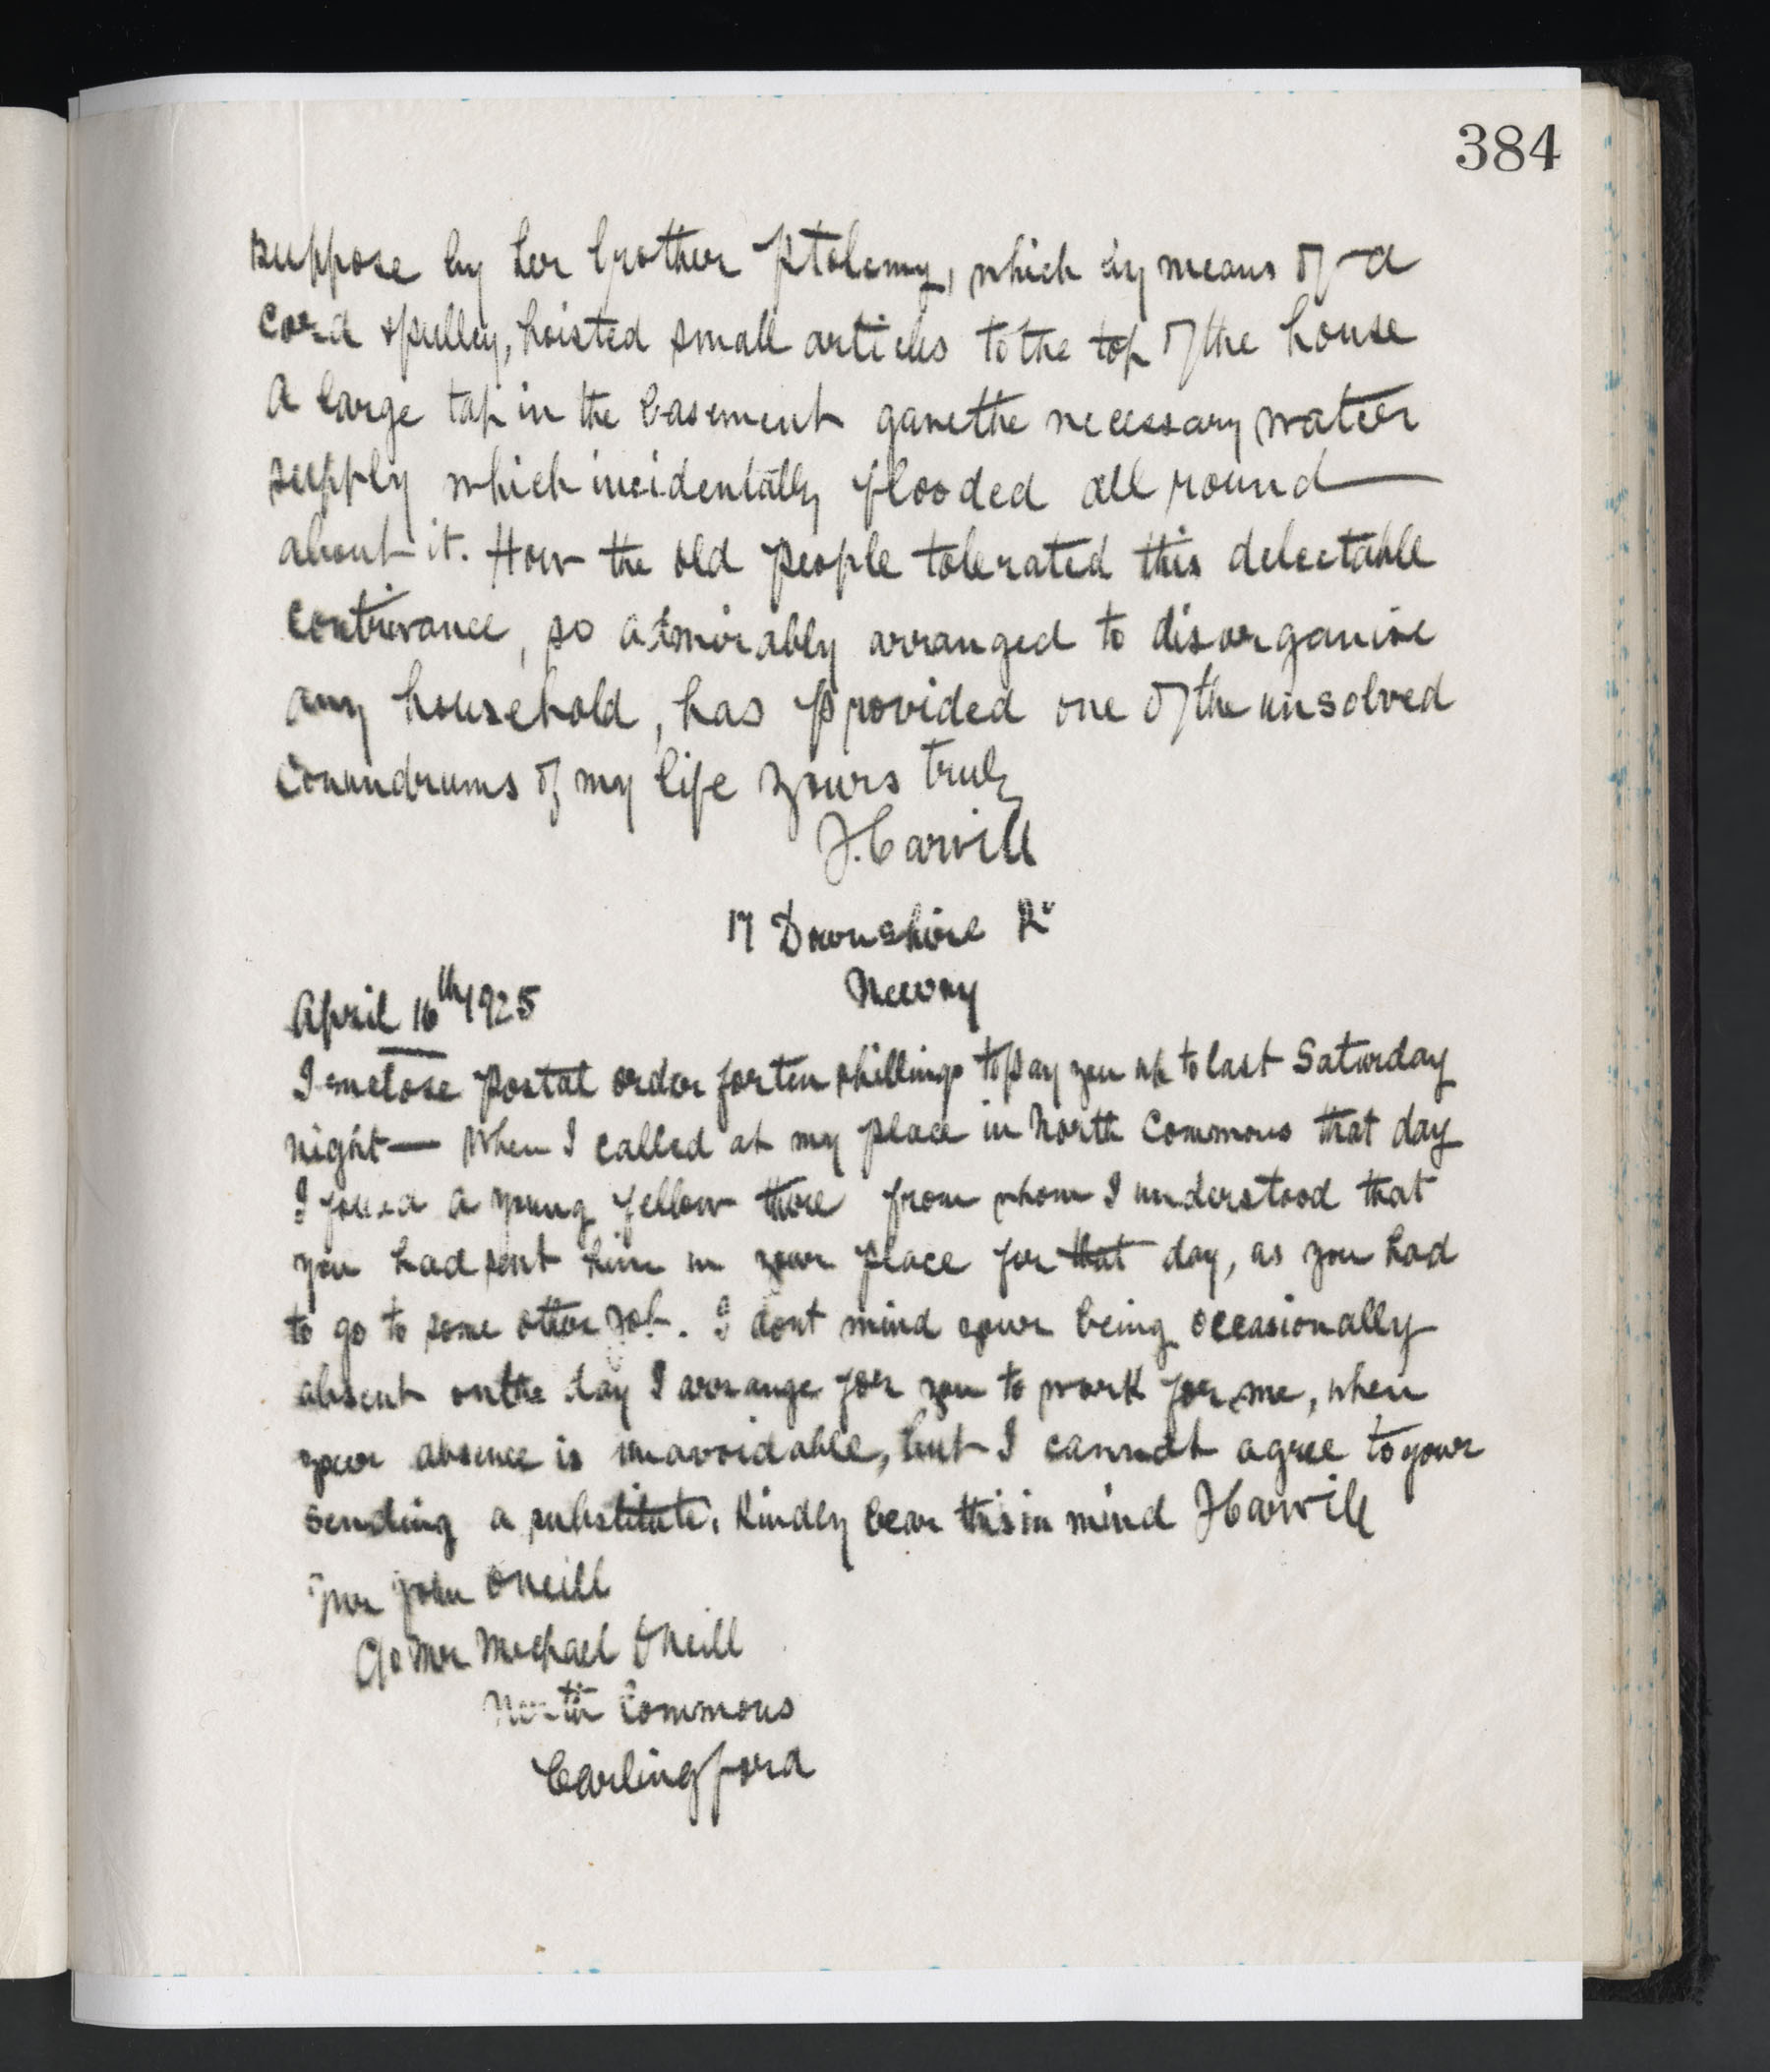 384
suppose by her brother Ptolemy, which by means of a
cord & pulley, hoisted small articles to the top of the house
A large tap in the basement gave the necessary water
supply which incidentally flooded all round
about it. How the old people tolerated this delectable
contrivance, so admirably arranged to disorganise
any household, has provided one of the unsolved
conundrums of my life yours truly
J. Carvill
17 Downshire Rd
Newry
April 16th 1925
I enclose postal order for ten shillings to pay you up to last Saturday
night — When I called at my place in North Commons that day
I found a young fellow there from whom I understood that
you had sent him in your place for that day, as you had
to go to some other job. I dont mind your being occasionally
absent on the day I arrange for you to work for me, when
your absence is unavoidable, but I cannot agree to your
sending a substitute. Kindly bear this in mind J Carvill
Mr John O'Neill
C/o Mr Michael O'Neill
North Commons
Carlingford